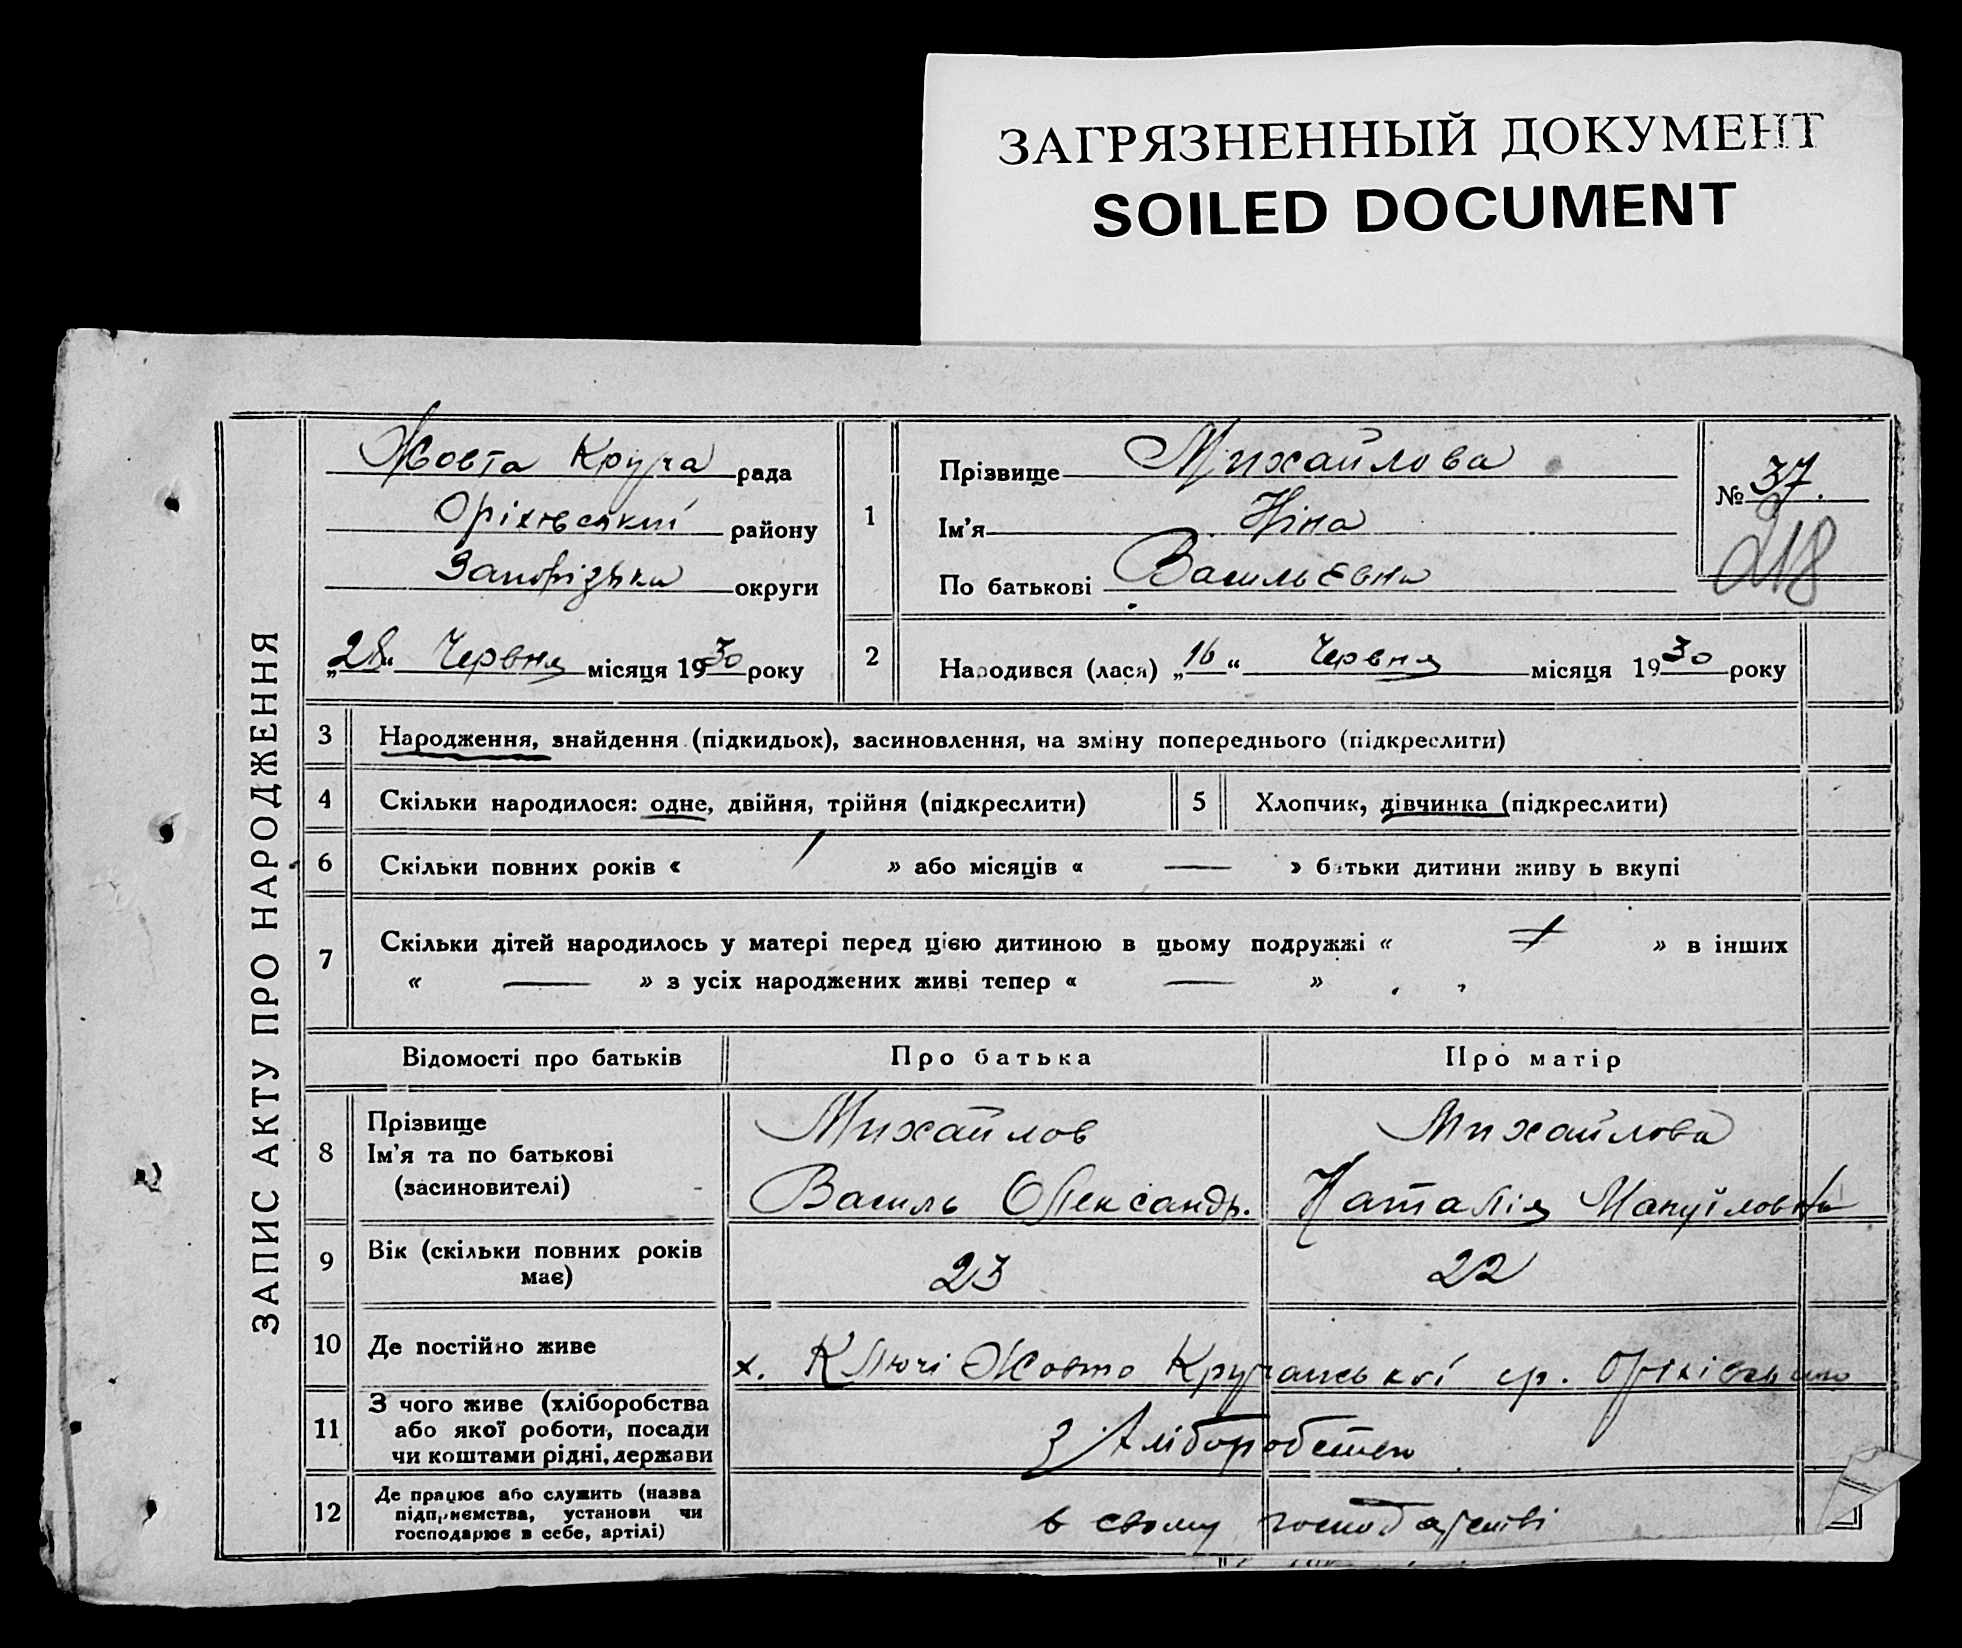 ЗАГРЯЗНЕННЫЙ ДОКУМЕНТ
SOILED DOCUMENT
ЗАПИС АКТУ ПРО НАРОДЖЕННЯ
Жовта Круча рада
Оріхівський району
Запорізька округи
„28“ Червня місяця 1930 року
1
Прізвище Михайлова
Ім'я Ніна
По батькові Васильевна
№ 37.
218
2
Народився (лася) „16“ Червня місяця 1930 року
3 Народження, знайдення (підкидьок), засиновлення, на зміну попереднього (підкреслити)
4 Скільки народилося: одне, двійня, трійня (підкреслити) 5 Хлопчик, дівчинка (підкреслити)
6 Скільки повних років « / » або місяців « — » батьки дитини живуть вкупі
7 Скільки дітей народилось у матері перед цією дитиною в цьому подружжі « » в інших
« — » з усіх народжених живі тепер « — »
Відомості про батьків Про батька Про матір
8 Прізвище
Ім'я та по батькові
(засиновителі)
Михайлов
Василь Олександр.
Михайлова
Наталія Мануіловна
9 Вік (скільки повних років
має)
23 22
10 Де постійно живе х. Ключі Жовто Кручанської ср.
11 З чого живе (хліборобства
або якої роботи, посади
чи коштами рідні, держави
з хліборобства
12 Де працює або служить (назва
підприємства, установи чи
господарює в себе, артілі)
в свому господарстві